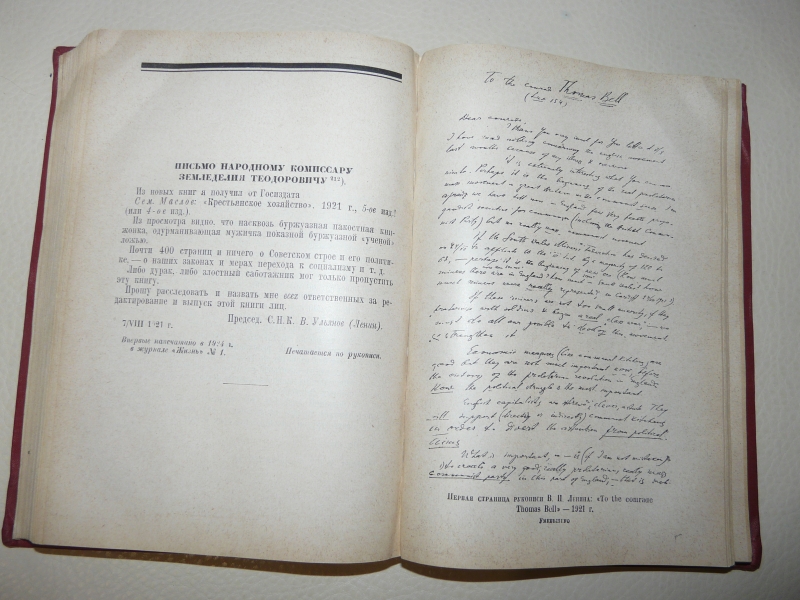 ПИСЬМО НАРОДНОМУ КОМИССАРУ
ЗЕМЛЕДЕЛИЯ ТЕОДОРОВИЧУ 312).
Из новых книг я получил от Госиздата
Сем. Маслов: «Крестьянское хозяйство». 1921 г., 5-ое изд.!
(или 4-ое изд.)
Из просмотра видно, что насквозь буржуазная пакостная кни-
жонка, одурманивающая мужичка показной буржуазной «ученой»
ложью.
Почти 400 страниц и ничего о Советском строе и его полити-
ке, — о наших законах и мерах перехода к социализму и т. д.
Либо дурак, либо злостный саботажник мог только пропустить
эту книгу.
Прошу расследовать и назвать мне всех ответственных за ре-
дактирование и выпуск этой книги лиц.
Председ. С.Н.К. В. Ульянов (Ленин).
7/VIII 1921 г.
Впервые напечатано в 1924 г.
в журнале «Жизнь» № 1.
Печатается по рукописи.
To the comrade Thomas Bell
Dear comrade,
I thank you very much for your letter
I have read nothing concerning the english movement
last months because of my illness
It is extremely interesting what you
Perhaps it is the beginning of the real proletarian
mass movement in great Britain in the communist sense. I am
afraid we have till now in England few very feeble propa-
but no really mass communist movement
If the South Wales Miners Federation has decided
on 24/VII to affiliate to the III Int. by a majority of 120 to
63, — perhaps it is the beginning of new era.
If these
do all our possible to develop this movement
& strengthen it
Economic measures (like communal kitchens) are
good but they are not much important now, before
the victory of the proletarian revolution in England.
Now the political struggle is the most important.
English capitalists are shrewd, clever, astute. They
will support (directly or indirectly) communal kitchens
in order to divert the attention from political
aims.
What is important, is — (if I am not mistaken):
to create a very good, really proletarian, really mass
Communist party in this part of England, — that is
ПЕРВАЯ СТРАНИЦА РУКОПИСИ В. И. ЛЕНИНА: «To the comrade
Thomas Bell» — 1921 г.
Уменьшено